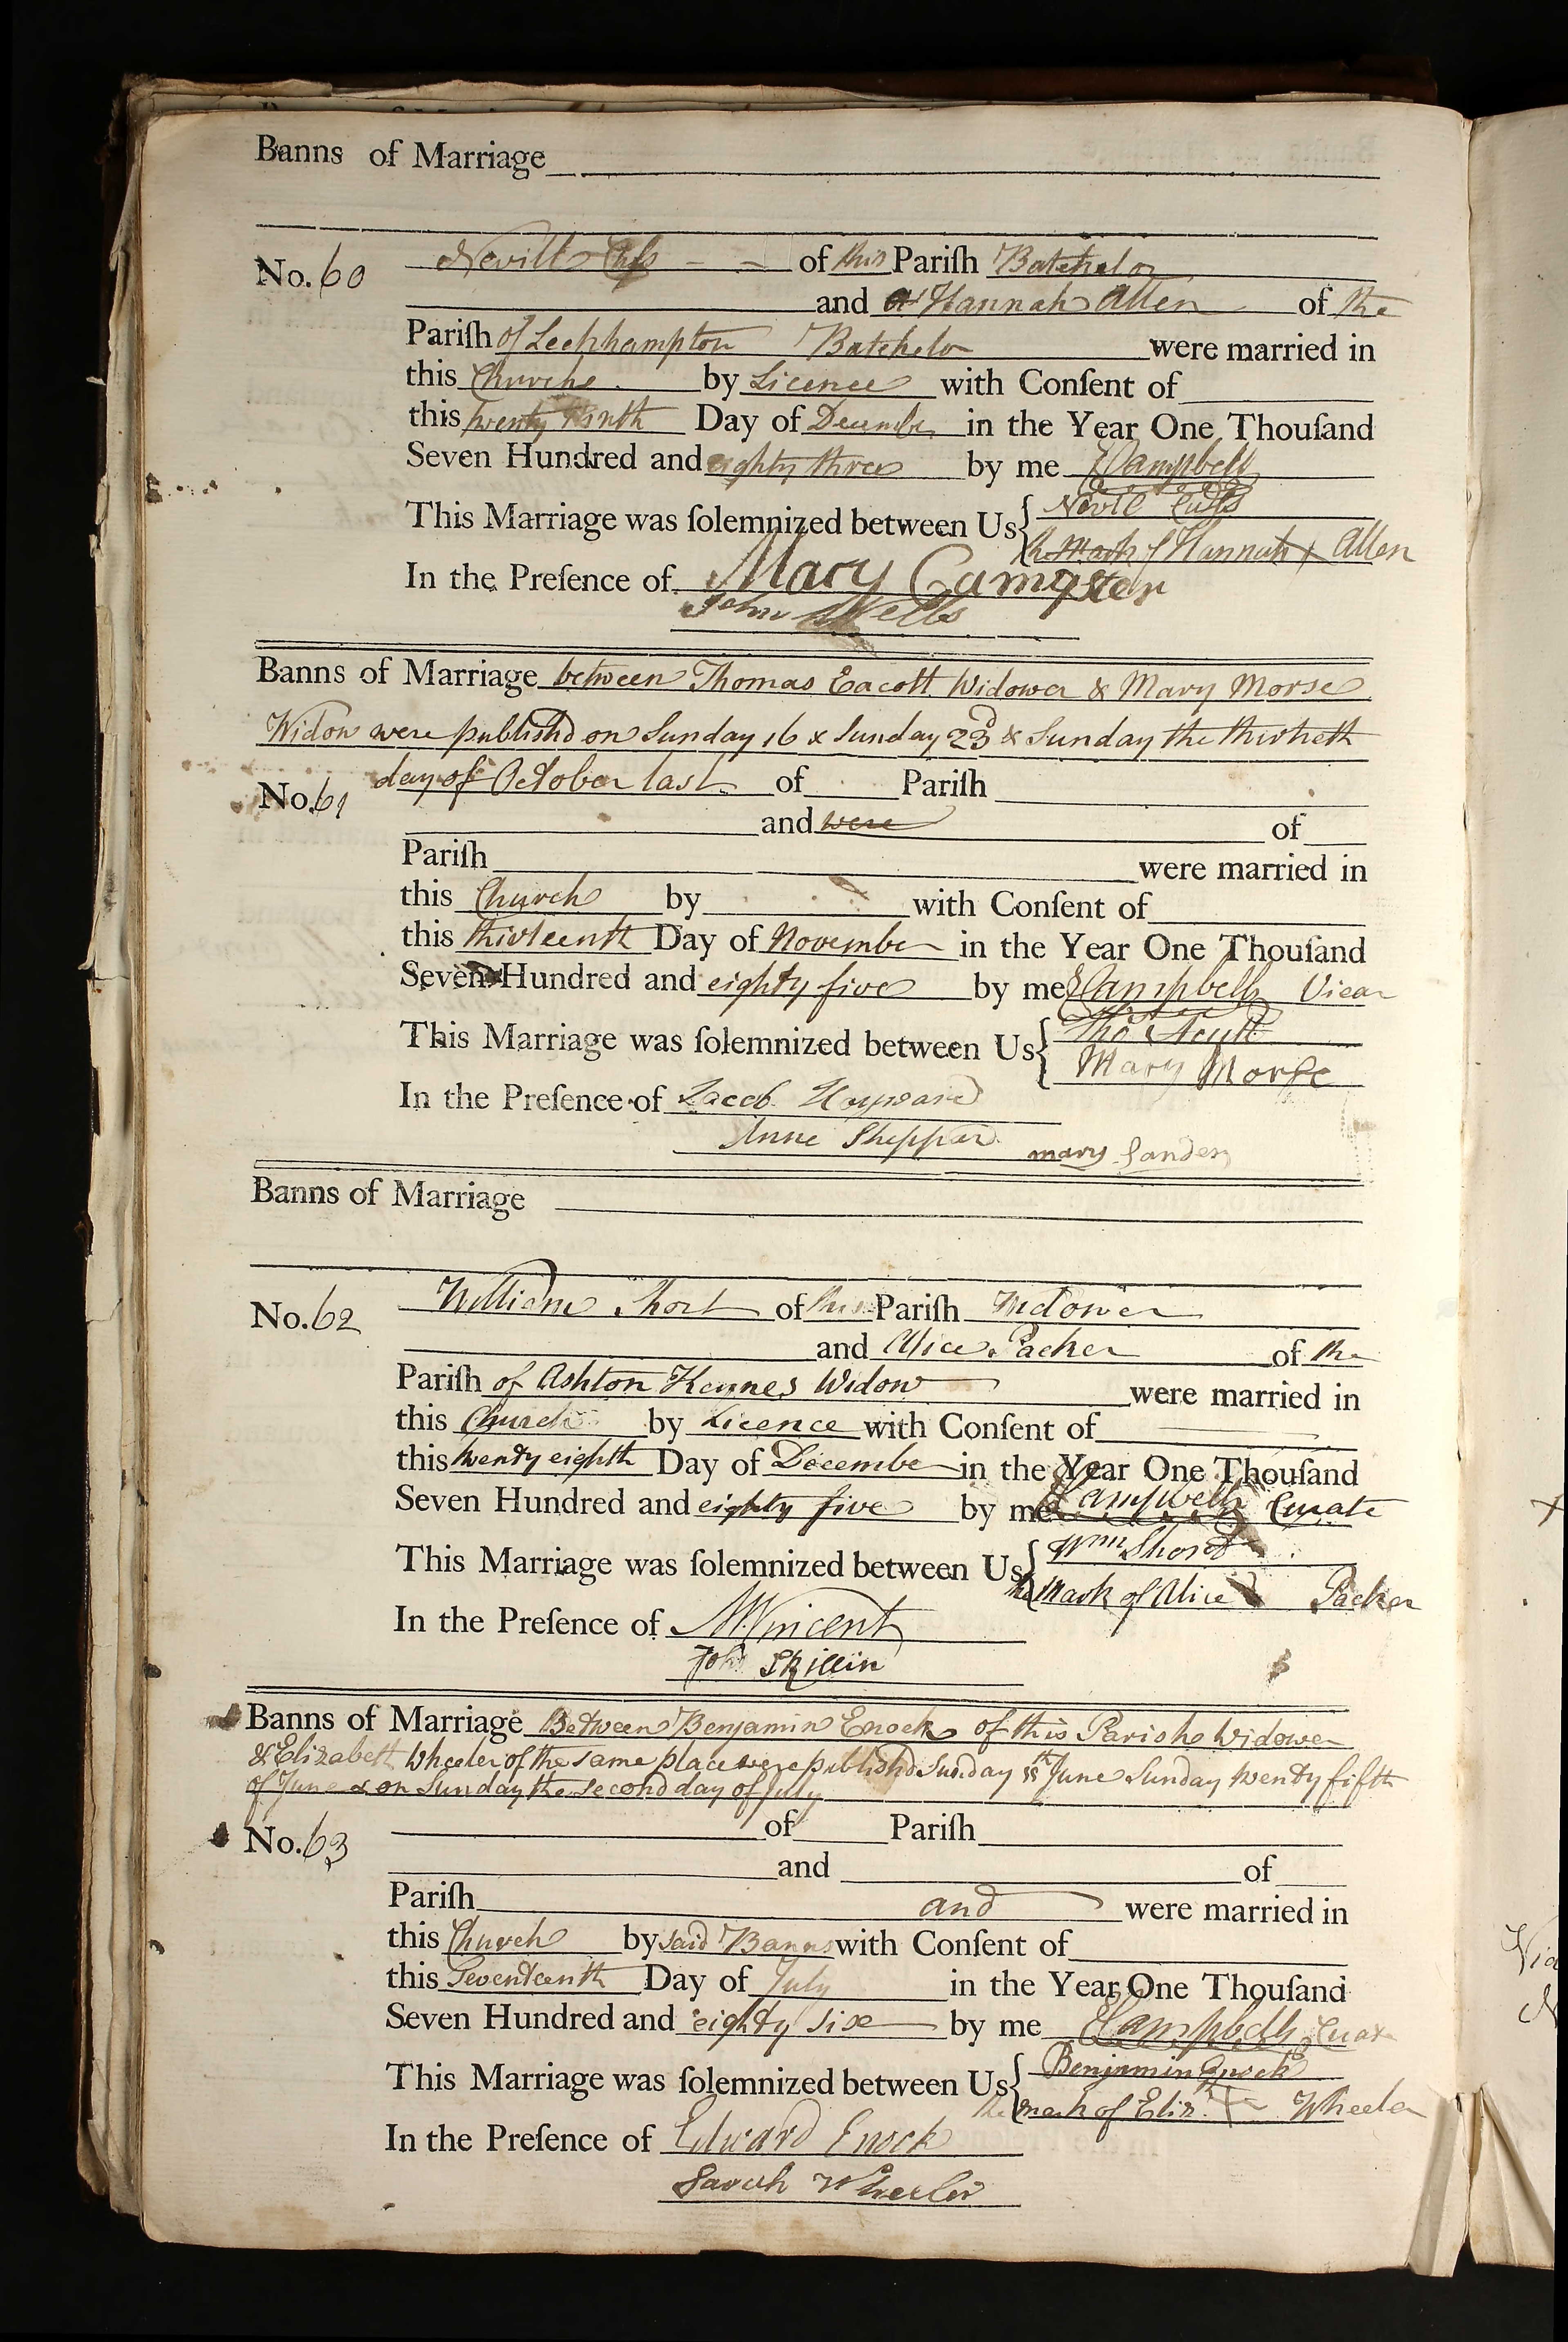 Banns of Marriage
No. 60 Nevill Cuſs of this Pariſh Batchelor
and Hannah Allen of the
Pariſh of Leckhampton Batchelor were married in
this Church by Licence with Conſent of
this twenty Day of December in the Year One Thouſand
Seven Hundred and eighty three by me Campbell
This Marriage was ſolemnized between Us Nevile Cuſs
the mark of Hannah x Allen
In the Preſence of Mary
John Wells
Banns of Marriage between Thomas Eacott Widower & Mary Morse
Widow were publishd on Sunday 16 & Sunday 23d & Sunday the thirtieth
No. 61 day of October last of Pariſh
and were of
Pariſh were married in
this Church by with Conſent of
this thirteenth Day of November in the Year One Thouſand
Seven Hundred and eighty five by me Campbell Vicar
This Marriage was ſolemnized between Us Tho
Mary Morſe
In the Preſence of Jacob Hayward
Anne Sheppard mary Sanders
Banns of Marriage
No. 62 William Short of this Pariſh Widower
and Alice Packer of the
Pariſh of Ashton Keynes Widow were married in
this Church by Licence with Conſent of
this twenty eighth Day of December in the Year One Thouſand
Seven Hundred and eighty five by me Campbell Curate
This Marriage was ſolemnized between Us Wm Short
the Mark of Alice Packer
In the Preſence of M Vincent
John Skillin
Banns of Marriage Between Benjamin Enock of this Parish Widower
& Elizabeth Wheeler of the same place were publishd Sunday 18th June Sunday twenty fifth
of June & on Sunday the second day of July
No. 63 of Pariſh
and of
Pariſh and were married in
this Church by said Banns with Conſent of
this Seventeenth Day of July in the Year One Thouſand
Seven Hundred and eighty six by me Campbell Curate
This Marriage was ſolemnized between Us Benjamin Enock
the mark of Eliz. + Wheeler
In the Preſence of Edward Enock
Sarah Wheeler